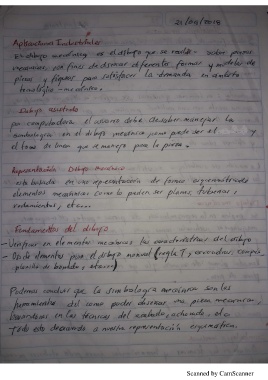 21/04/2018
Aplicaciones Industriales
El dibujo mecánico es el dibujo que se realiza sobre piezas
mecánicas con fines de diseñar diferentes formas y modelos de
piezas y figuras para satisfacer la demanda en ámbito
tecnológico - mecánico.
Dibujo asistido
por computadora el usuario debe de saber manejar la
simbología en el dibujo mecánico como puede ser el y
el tono de línea que maneja para la pieza.
Representación Dibujo mecánico
esta basada en una representación de forma
elementos mecánicos como lo pueden ser planos, tuberías o
rodamientos, etc...
Fundamentos del dibujo
- Verificar en elementos mecánicos las características del dibujo
- Uso de elementos para el dibujo normal (regla T, escuadras,
de , etc...)
Podemos concluir que la simbología mecánica son las
herramientas del como poder diseñar una pieza mecánica
basandonos en las técnicas del acotado, achurado, etc
Todo esto a nuestra representación
Scanned by CamScanner